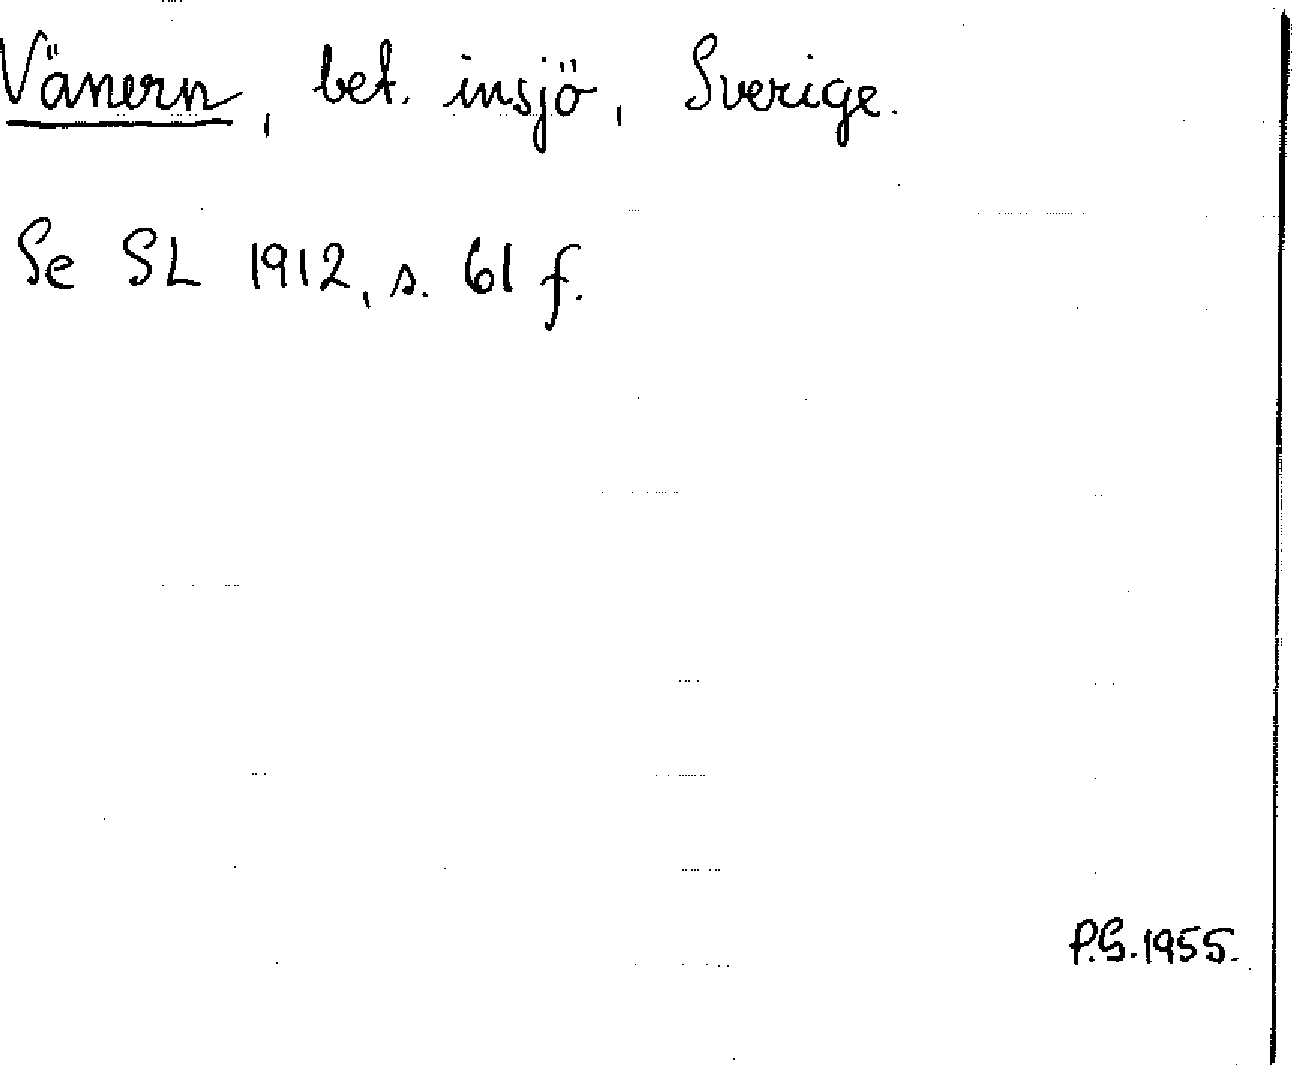 Vänern, bet. insjö, Sverige.
Se SL 1912, s. 61 f.
P.G.1955.